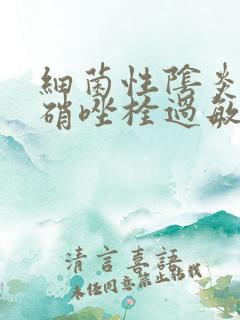 細菌性陰炎
硝唑栓過敏
清言喜語
未经同意禁止转载